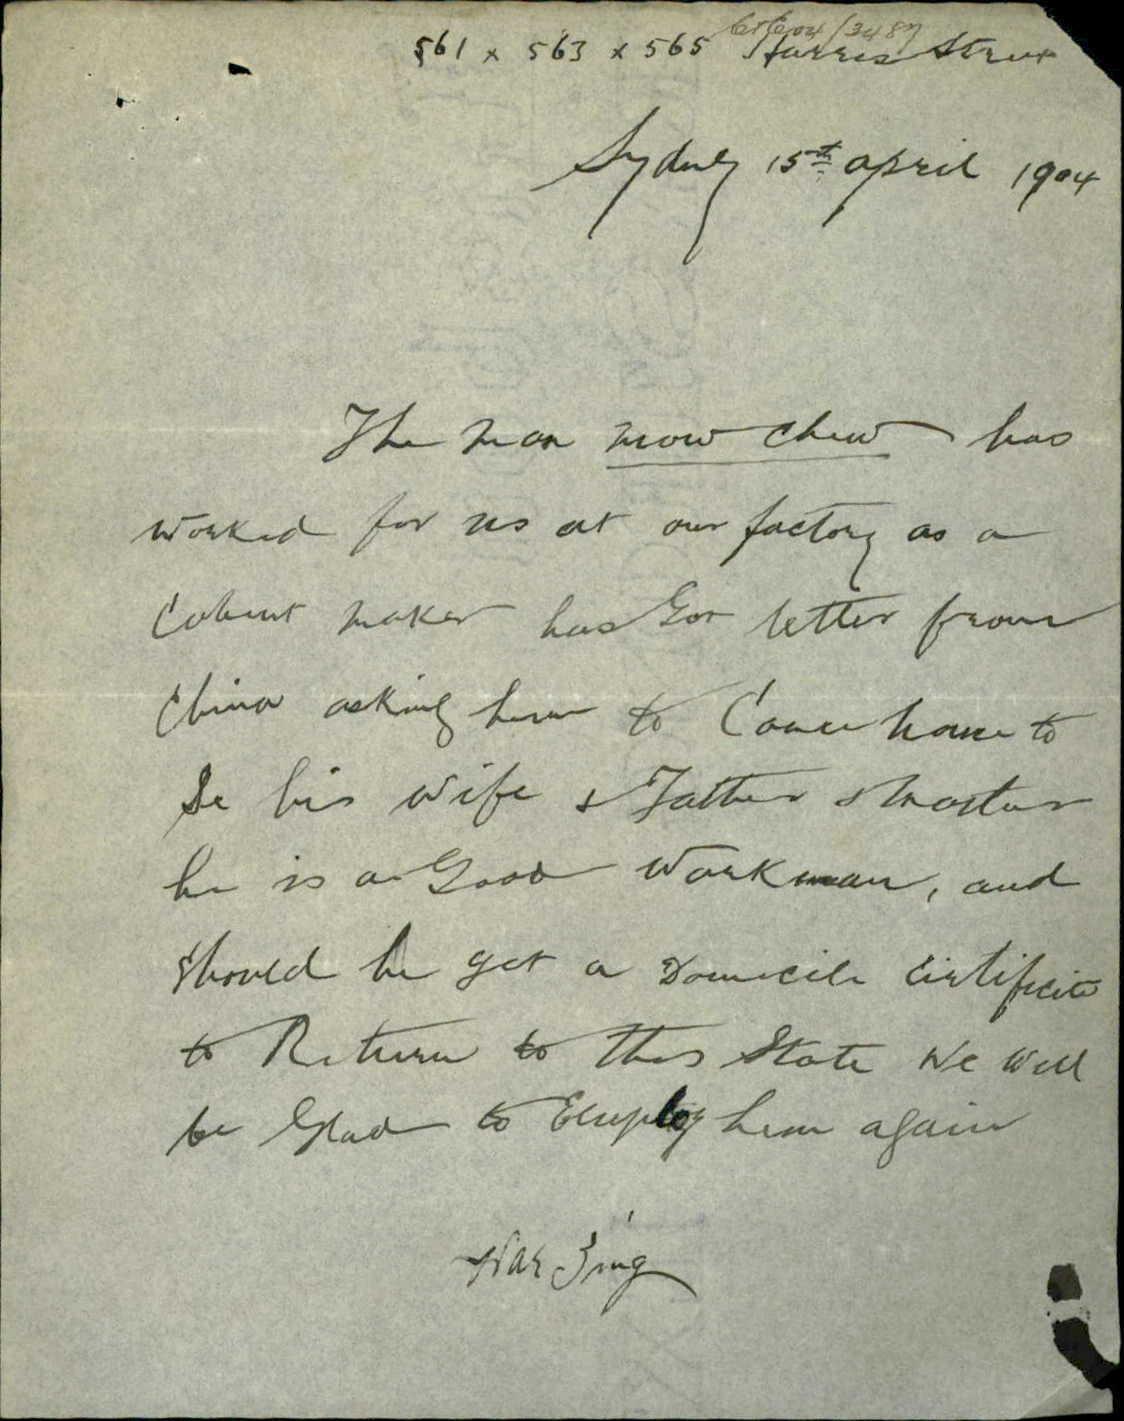 561 x 563 x 565 Harris Street
Sydney 15th april 1904
The man mow chew has
worked for us at our factory as a
Cabint maker has Got letter from
China asking him to Come home to
Se his wife & Father & Mother
he is a Good workman, and
should he get a Domicile Cirtificite
to Return to this State We will
be Glad to Employ him again
War Sing